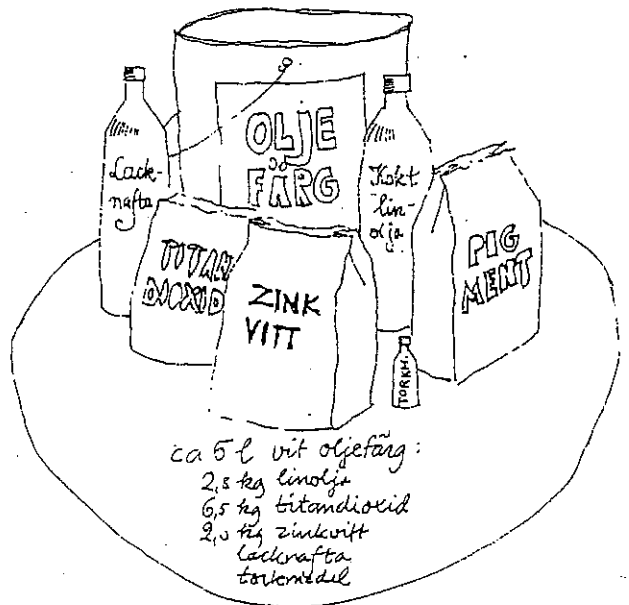 OLJE
FÄRG
Lack-
nafta
Kokt
lin-
olja
TITAN
DIOXID
ZINK
VITT
PIG
MENT
TORKM.
ca 5 l vit oljefärg:
2,5 kg linolja
6,5 kg titandioxid
2,0 kg zinkvitt
lacknafta
torkmedel